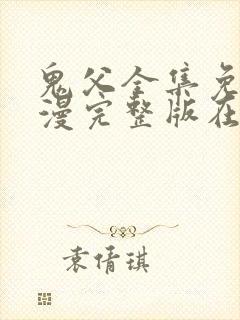 鬼父全集免
漫完整版在
袁倩琪